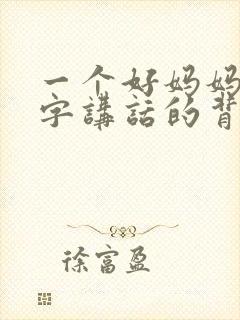 一个好妈妈
字講話的背
徐富盈